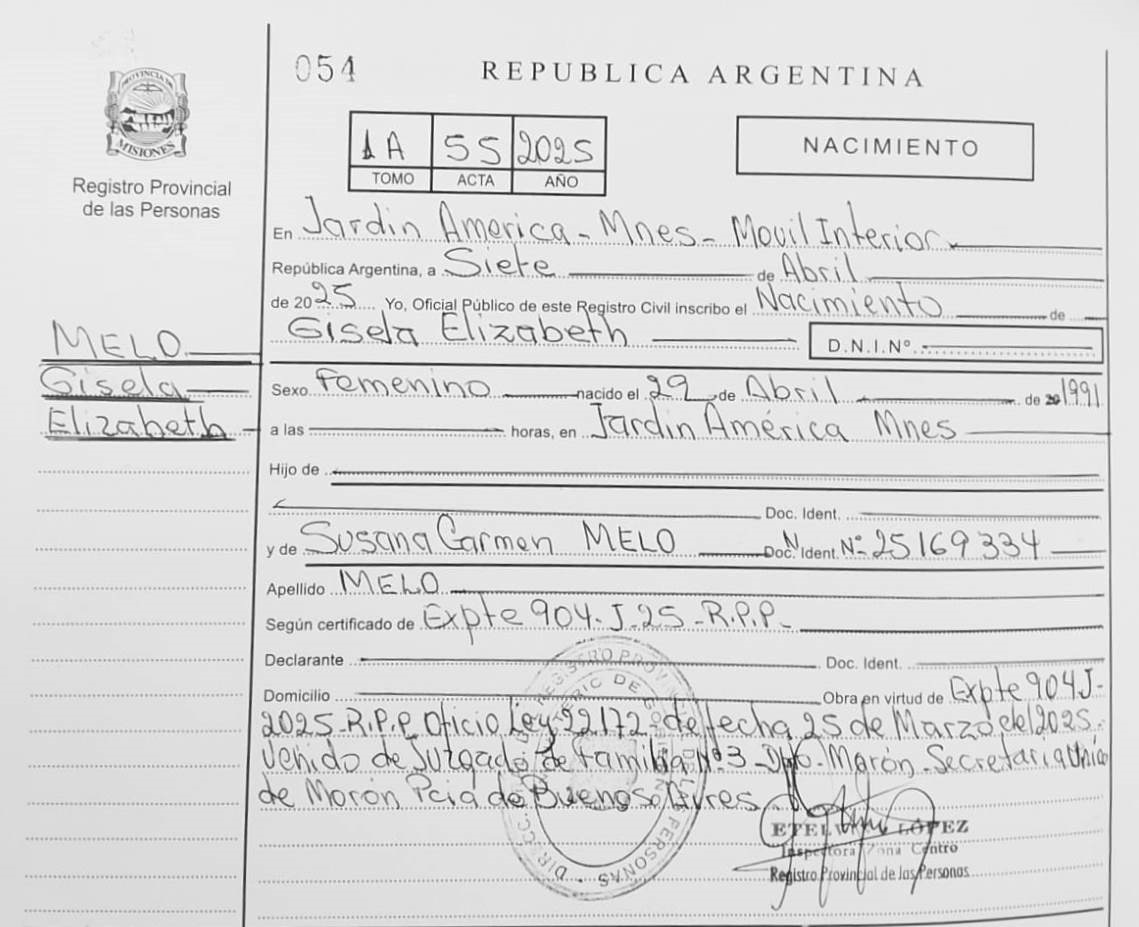 054
REPUBLICA ARGENTINA
PROVINCIA DE
MISIONES
Registro Provincial
de las Personas
1A 55 2025
TOMO ACTA AÑO
NACIMIENTO
En Jardin America - Mnes - Movil Interior
República Argentina, a Siete de Abril
de 2025 Yo, Oficial Público de este Registro Civil inscribo el Nacimiento de
Gisela Elizabeth
D.N.I.Nº
MELO
Gisela
Elizabeth
Sexo Femenino nacido el 29 de Abril de 20 1991
a las horas, en Jardin América Mnes
Hijo de
Doc. Ident.
y de Susana Carmen MELO Doc. Ident. Nº 25169334
Apellido MELO
Según certificado de Expte 904-J-25-R.P.P-
Declarante Doc. Ident.
Domicilio Obra en virtud de Expte 904J-
2025-R.P.P Oficio Ley 22172- de fecha 25 de Marzo del 2025-
Venido de Juzgado de Familia Nº3 - Dto. Morón - Secretaria Unica
de Morón Pcia de Buenos Aires
LÓPEZ
Inspectora Zona Centro
Registro Provincial de las Personas
REGISTRO PROVINCIAL
DE
PERSONAS